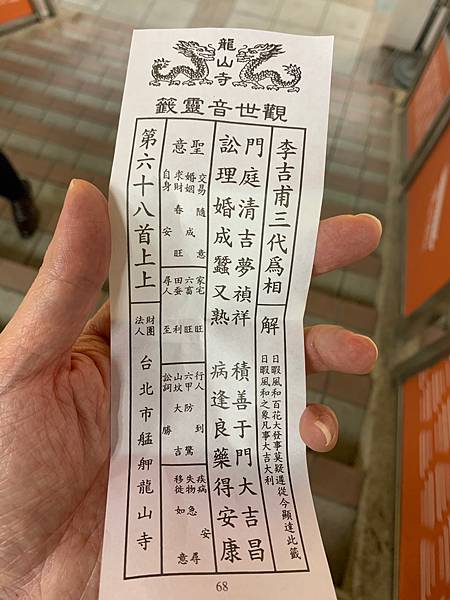 龍山寺
觀世音靈籤
李吉甫三代爲相
解
日暇風和百花大發事莫疑遲從今顯達此籤
日暇風和之象凡事大吉大利
門庭清吉夢禎祥 積善于門大吉昌
訟理婚成蠶又熟 病逢良藥得安康
聖意
交易隨意
婚姻成
求財春旺
自身安
家宅旺
六畜旺
田蚕利
尋人至
行人到
六甲防驚
山坟大吉
訟詞勝
疾病安
失物急尋
移徙如意
第六十八首上上
財團法人 台北市艋舺龍山寺
68